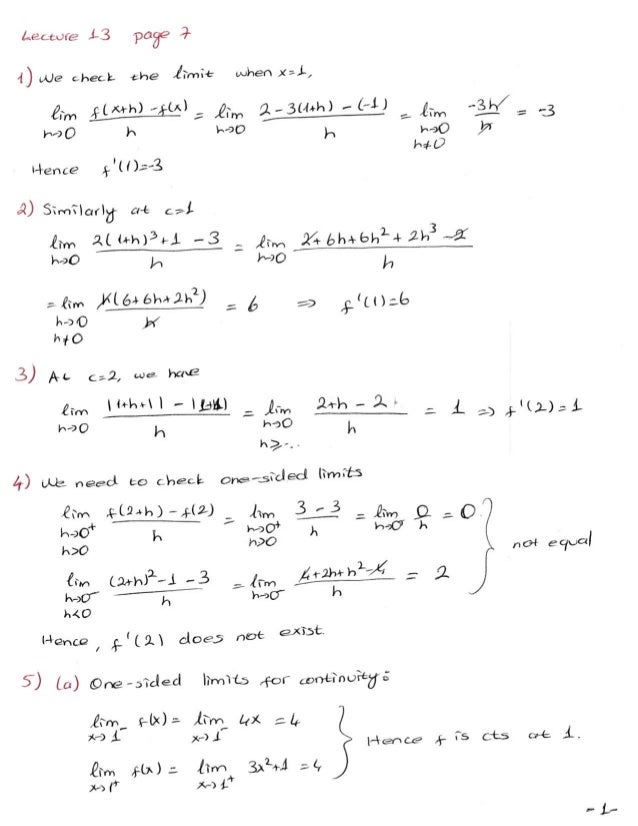 Lecture 13 page 7
1) We check the limit when x=1,
lim h→0 (f(x+h) - f(x))/h = lim h→0 (2-3(1+h) - (-1))/h = lim h→0 h≠0 (-3h)/h = -3
Hence f'(1)=-3
2) Similarly at c=1
lim h→0 (2(1+h)³+1 - 3)/h = lim h→0 (2+6h+6h²+2h³-2)/h
= lim h→0 h≠0 h(6+6h+2h²)/h = 6 ⇒ f'(1)=6
3) At c=2, we have
lim h→0 (|1+h+1| - |1+1|)/h = lim h→0 h≥-... (2+h-2)/h = 1 ⇒ f'(2)=1
4) We need to check one-sided limits
lim h→0⁺ h>0 (f(2+h)-f(2))/h = lim h→0⁺ h>0 (3-3)/h = lim h→0 0/h = 0
not equal
lim h→0⁻ h<0 ((2+h)²-1-3)/h = lim h→0⁻ (4+2h+h²-4)/h = 2
Hence, f'(2) does not exist.
5) (a) One-sided limits for continuity:
lim x→1⁻ f(x) = lim x→1⁻ 4x = 4
Hence f is cts at 1.
lim x→1⁺ f(x) = lim x→1⁺ 3x²+1 = 4
-1-